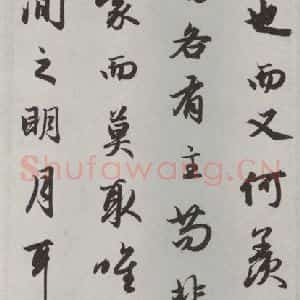 也而又何羡
各有主苟非
豪而莫取唯
间之明月耳
Shufawang.CN